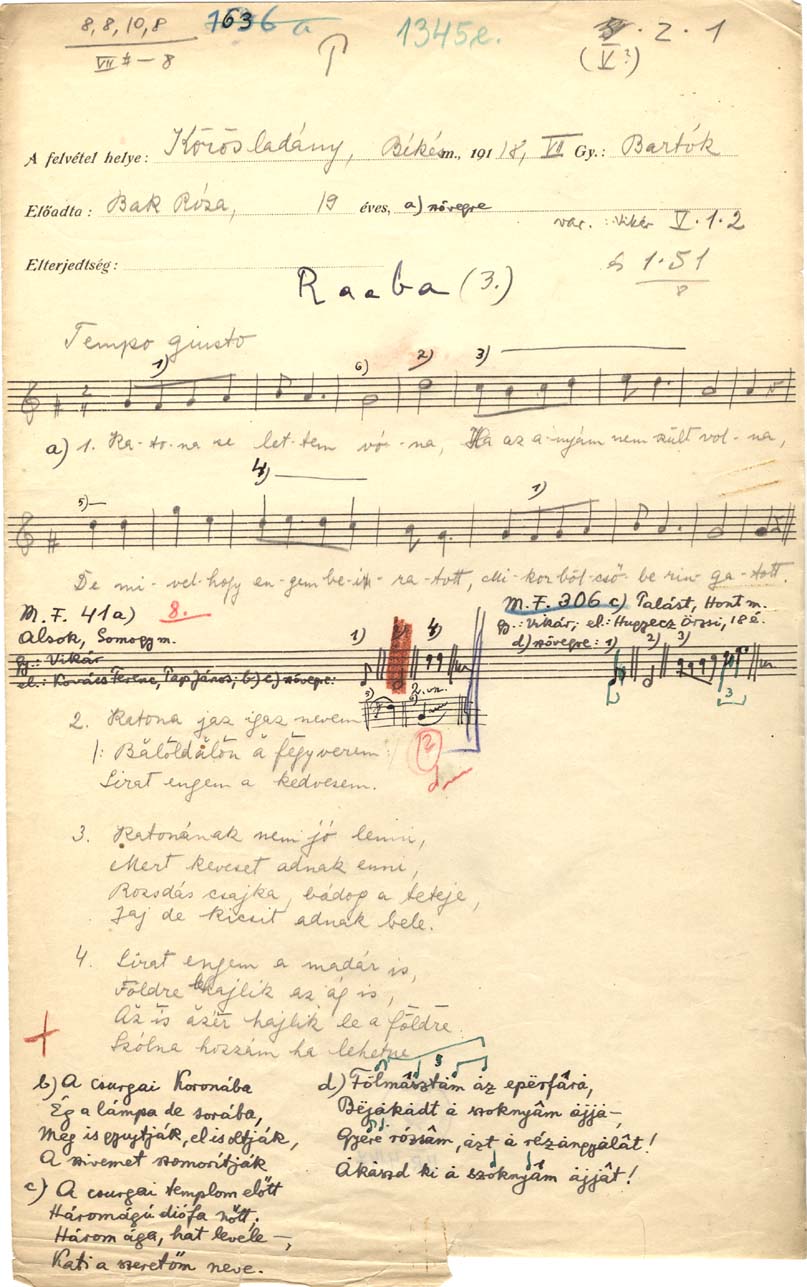 8, 8, 10, 8
VII # – 8
1636 a
1345e.
5 . 2 . 1
(V?)
A felvétel helye: Körösladány, Békés m., 191 8, VII Gy.: Bartók
Előadta: Bak Róza, 19 éves, a) növegre
var.: Vikár V.1.2
Elterjedtség:
1.51
8
R a c b a (3.)
Tempo giusto
1) 6) 2) 3)
a) 1. Ka-to-na se let-tem vó-na, Ha az a-nyám nem szült vol-na,
5) 4) 1)
De mi-vel hogy en-gem be-ir-ra-tott, Mi-kor böl-cső-be rin-ga-tott.
M.F. 41a) 8.
Alsok, Somogy m.
gy.: Vikár
el.: Kovács Ferenc, Pap János; b) c) növegre:
1) 4)
2. vsz.
M.F. 306 c) Palást, Hont m.
gy.: Vikár; el.: Hugyecz Örzsi, 18 é.
d) növegre: 1) 2) 3)
3
2. Katona jaz igaz nevem
|: Bălŏldălŏn ă fegyverem :|
Sirat engem a kedvesem.
2
3. Katonának nem jó lenni,
Mert keveset adnak enni,
Rozsdás csajka, bádog a teteje,
Jaj de kicsit adnak bele.
4. Sirat engem a madár is,
Földre lehajlik az ág is,
Az is azér hajlik le a földre
Szólna hozzám ha lehetne
b) A csurgai Koronába
Ég a lámpa de sorába,
Meg is gyujtják, el is oltják,
A szivemet szomorítják
c) A csurgai templom előtt
Háromágú diófa nőtt.
Három ága, hat levele –,
Kati a szeretőm neve.
d) Fölmásztám áz epërfárá,
Béjákádt á szoknyâm ájjá–,
Gyere rózsâm, ázt á rézángyálât!
Ákászd ki á szoknyâm ájját!